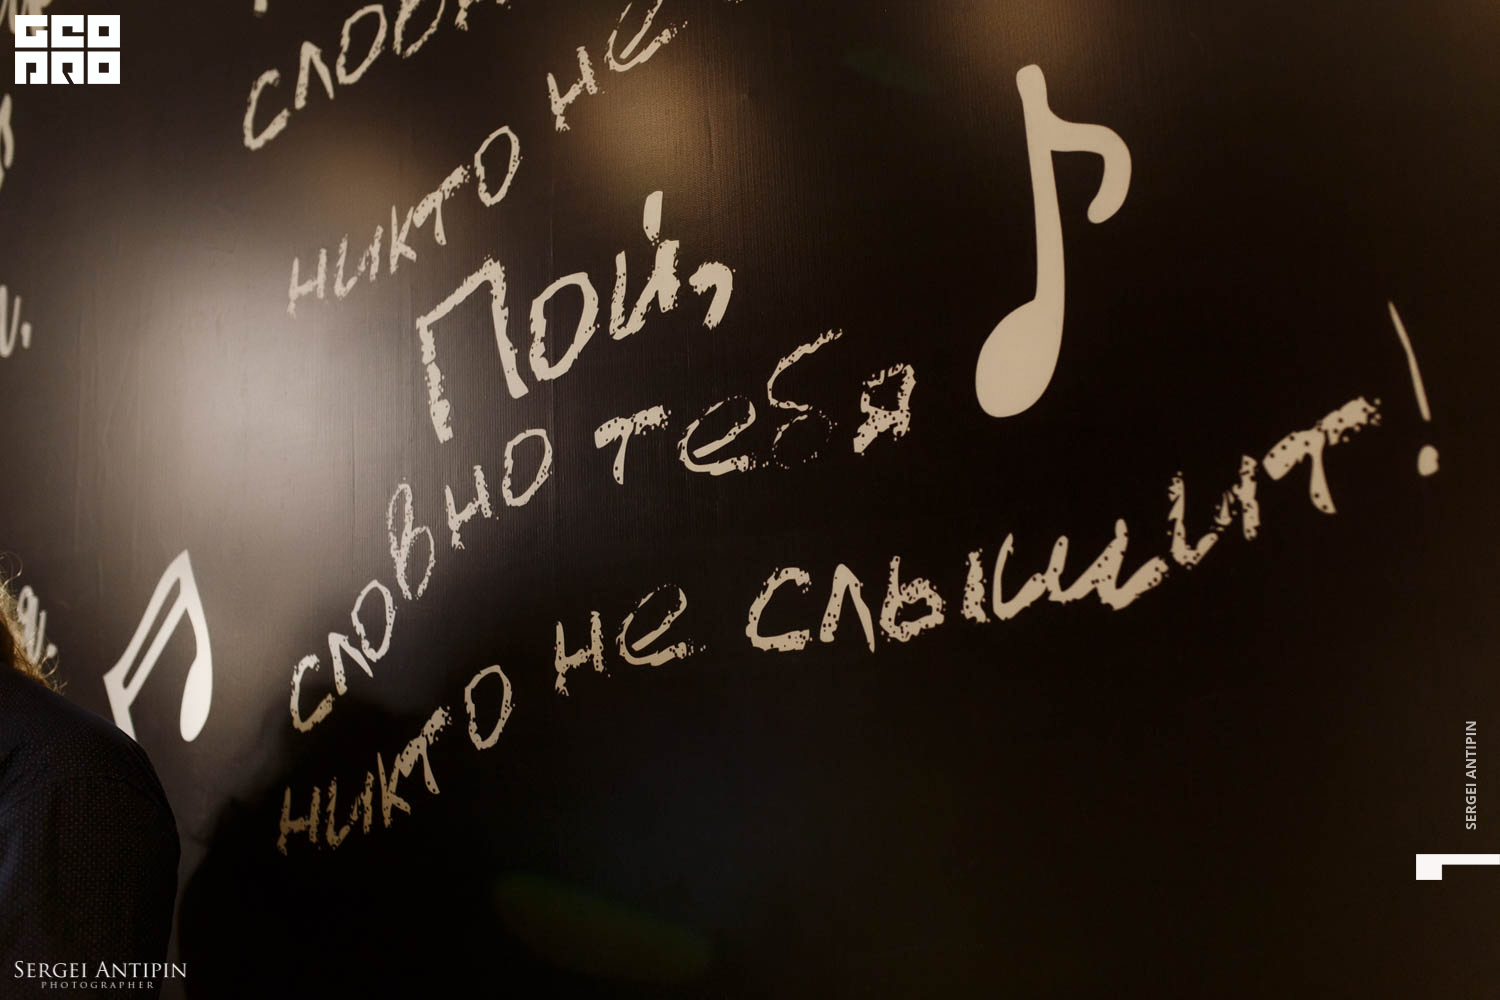 GEO
PRO
никто не
Пой,
словно тебя
никто не слышит!
SERGEI ANTIPIN
SERGEI ANTIPIN
PHOTOGRAPHER